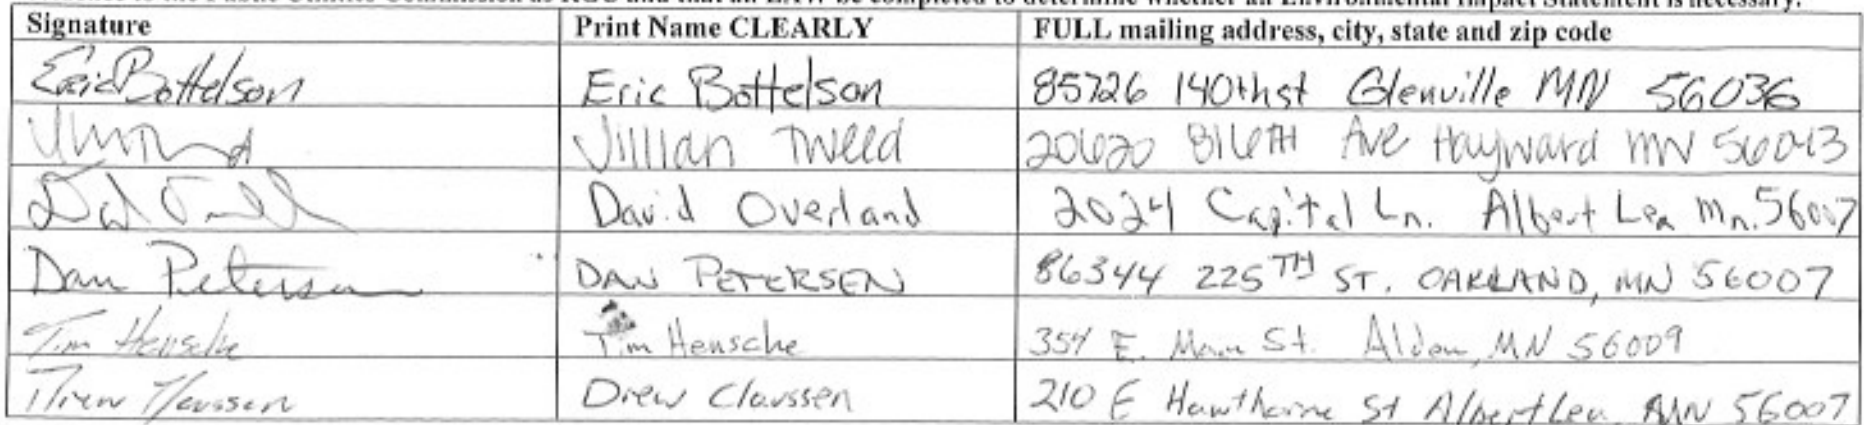 Signature Print Name CLEARLY FULL mailing address, city, state and zip code
Eric Bottelson Eric Bottelson 85726 140thst Glenville MN 56036
Jillian Tweed 20620 816TH Ave Hayward MN 56043
David Overland 2024 Capital Ln. Albert Lea Mn. 56007
Dan Petersen DAN PETERSEN 86344 225TH ST. OAKLAND, MN 56007
Tim Hensche Tim Hensche 354 E. Main St. Alden, MN 56009
Drew Claussen Drew Claussen 210 E Hawthorne St Albert Lea MN 56007